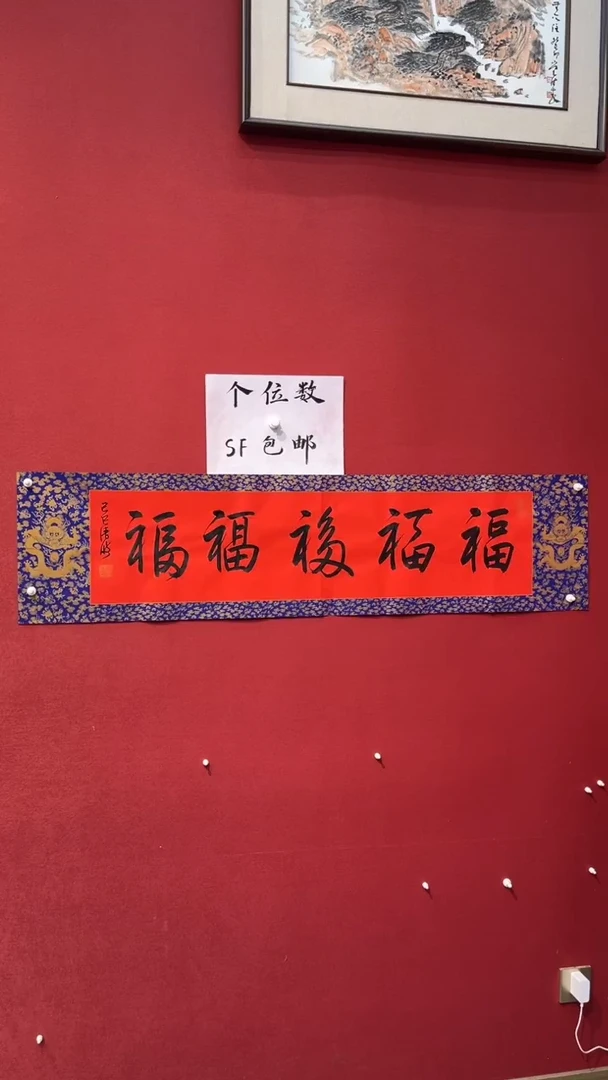 个位数
SF包邮
福福福福福